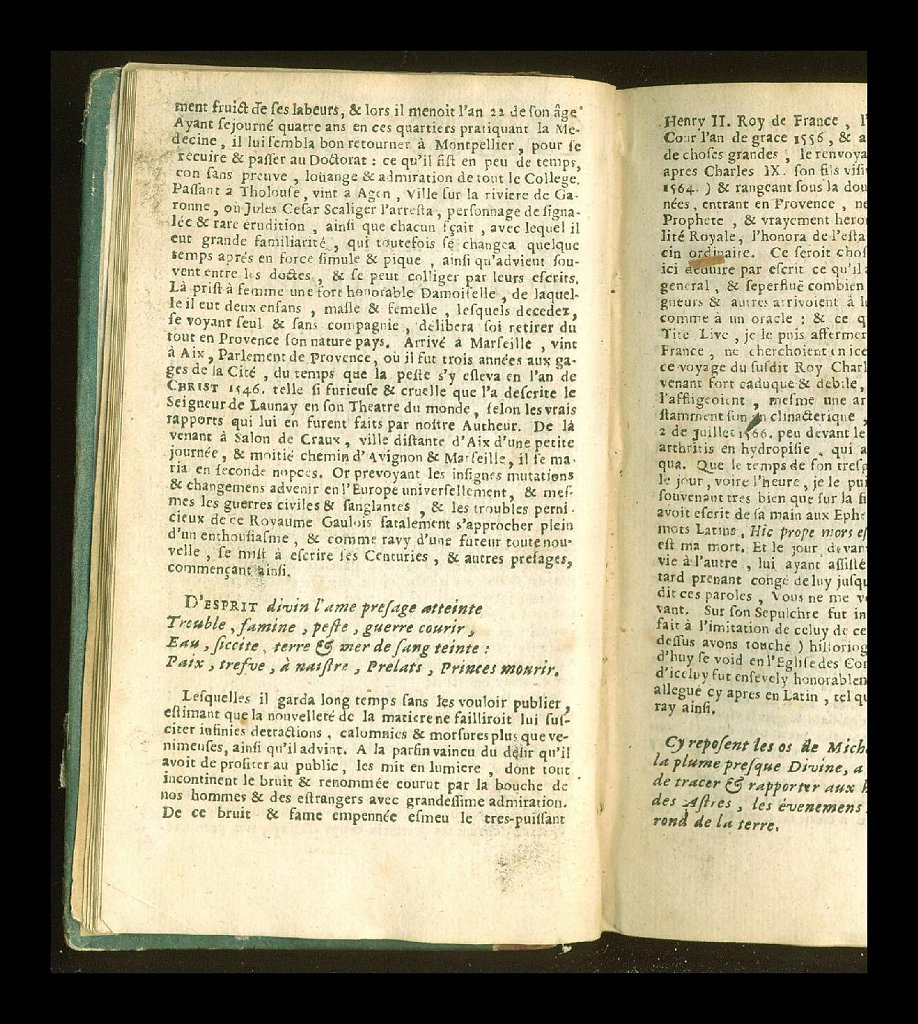 ment fruict de ses labeurs, & lors il menoit l'an 22 de son âge
Ayant sejourné quatre ans en ces quartiers pratiquant la Me-
decine, il lui sembla bon retourner à Montpellier, pour se
recuire & passer au Doctorat : ce qu'il fist en peu de temps,
con sans preuve, loüange & admiration de tout le College.
Passant à Tholouse, vint à Agen, Ville sur la riviere de Ga-
ronne, où Jules Cesar Scaliger l'arresta, personnage de signa-
lée & rare erudition, ainsi que chacun sçait, avec lequel il
eut grande familiarité, qui toutefois se changea quelque
temps aprés en force simule & pique, ainsi qu'advient sou-
vent entre les doctes, & se peut colliger par leurs escrits.
Là prist à femme une fort honorable Damoiselle, de laquel-
le il eut deux ensans, masle & femelle, lesquels decedez,
se voyant seul & sans compagnie, délibera soi retirer du
tout en Provence son nature pays. Arrivé à Marseille, vint
à Aix, Parlement de Provence, où il fut trois années aux ga-
ges de la Cité, du temps que la peste s'y esleva en l'an de
CHRIST 1546. telle si furieuse & cruelle que l'a descrite le
Seigneur de Launay en son Theatre du monde, selon les vrais
rapports qui lui en furent faits par nostre Autheur. De là
venant à Salon de Craux, ville distante d'Aix d'une petite
journée, & moitié chemin d'Avignon & Marseille, il se ma-
ria en seconde nopces. Or prevoyant les insignes mutations
& changemens advenir en l'Europe universellement, & mes-
mes les guerres civiles & sanglantes, & les troubles perni-
cieux de ce Royaume Gaulois fatalement s'approcher plein
d'un enthousiasme, & comme ravy d'une fureur toute nou-
velle, se mist à escrire ses Centuries, & autres presages,
commençant ainsi.
D'ESPRIT divin l'ame presage atteinte
Trouble, famine, peste, guerre courir,
Eau, siccite, terre & mer de sang teinte :
Paix, tresve, à naistre, Prelats, Princes mourir.
Lesquelles il garda long temps sans les vouloir publier,
estimant que la nouvelleté de la matiere ne failliroit lui sus-
citer infinies detractions, calomnies & morsures plus que ve-
nimeuses, ainsi qu'il advint. A la parfin vaincu du desir qu'il
avoit de profiter au public, les mit en lumiere, dont tout
incontinent le bruit & renommée courut par la bouche de
nos hommes & des estrangers avec grandessime admiration.
De ce bruit & fame empennée esmeu le tres-puissant
Henry II. Roy de France,
Cour l'an de grace 1556, & a
de choses grandes, le renvoya
apres Charles IX. son fils visi
1564. ) & rangeant sous la dou
nées, entrant en Provence, ne
Prophete, & vrayement heroi
lité Royale, l'honora de l'esta
cin ordinaire. Ce seroit chos
ici déduire par escrit ce qu'il
general, & seperfluë combien
gneurs & autres arrivoient à l
comme à un oracle : & ce q
Tite Live, je le puis affermer
France, ne cherchoient en ice
ce voyage du susdit Roy Charl
venant fort caduque & debile,
l'affligeoient, mesme une ar
stamment son an clinacterique,
2 de Juillet 1566. peu devant le
arthritis en hydropisie, qui a
qua. Que le temps de son tresp
le jour, voire l'heure, je le pui
souvenant tres bien que sur la fi
avoit escrit de sa main aux Ephe
mots Latins, Hic prope mors es
est ma mort. Et le jour devan
vie à l'autre, lui ayant assisté
tard prenant congé de luy jusqu
dit ces paroles, Vous ne me v
vant. Sur son Sepulchre fut in
fait à l'imitation de celuy de ce
dessus avons touché ) historiog
d'huy se void en l'Eglise des Cor
d'iceluy fut ensevely honorablem
allegué cy apres en Latin, tel qu
ray ainsi.
Cy reposent les os de Mich
la plume presque Divine, a
de tracer & rapporter aux h
des Astres, les évenemens
rond de la terre.